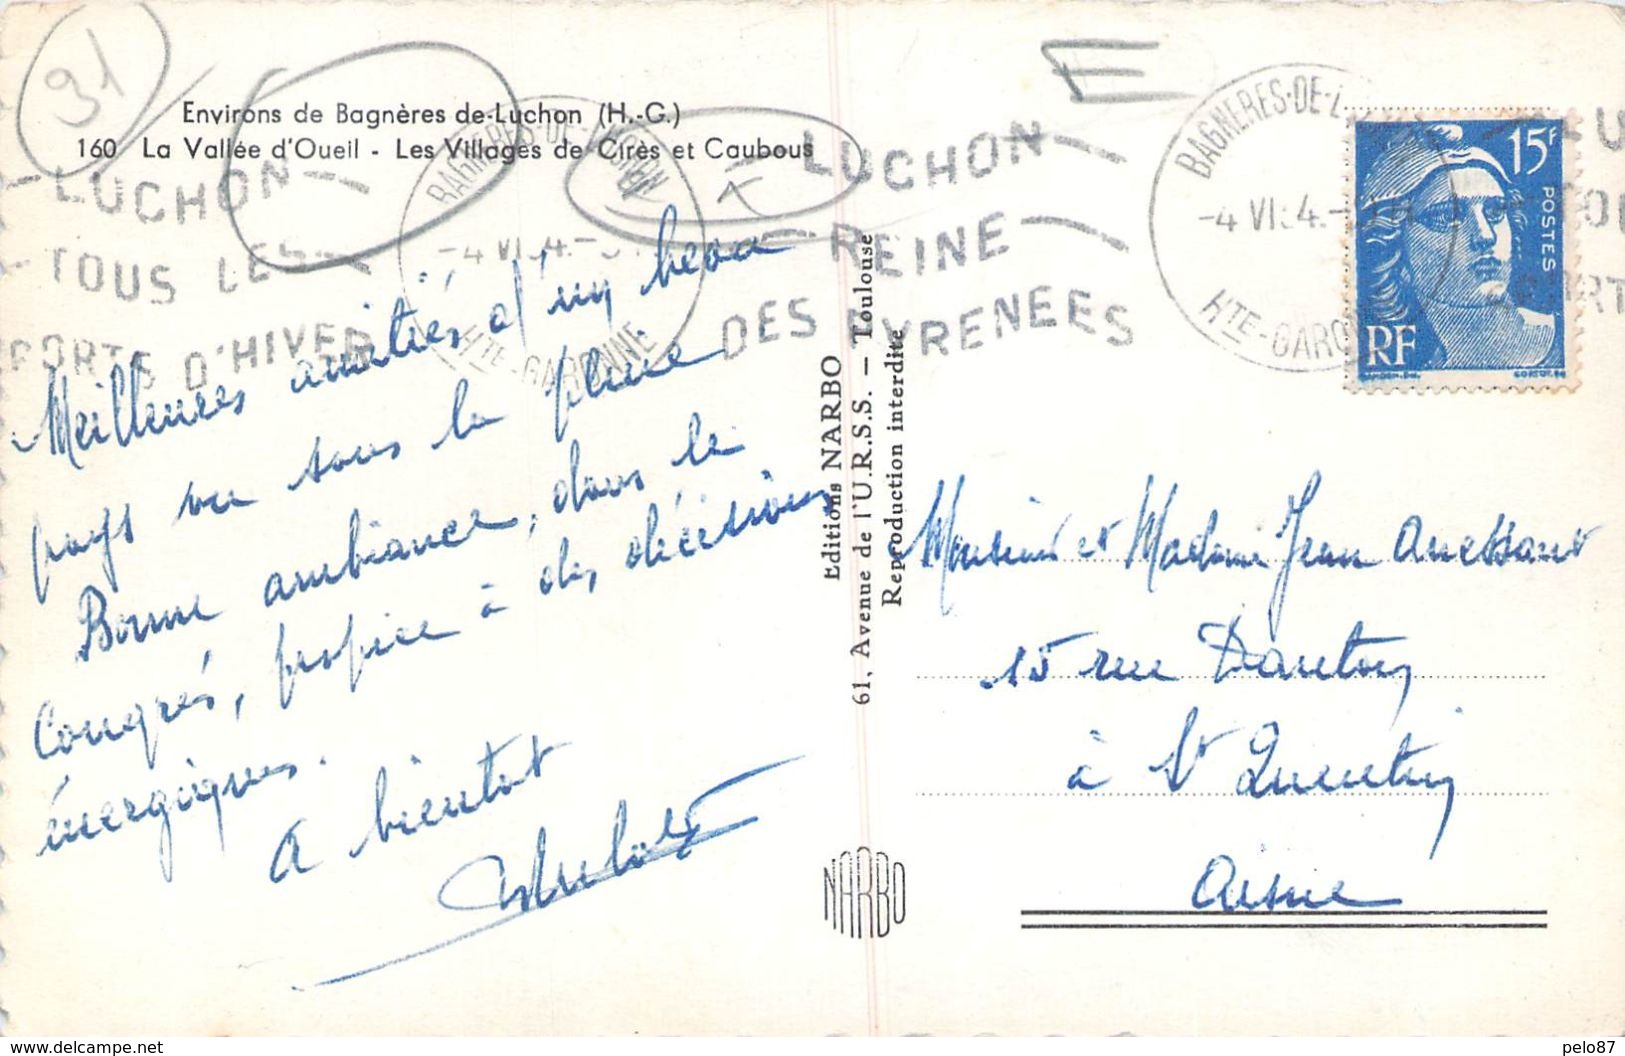 31
Environs de Bagnères-de-Luchon (H.-G.)
160 La Vallée d'Oueil - Les Villages de Cirès et Caubous
LUCHON
TOUS LES
PORTS D'HIVER
BAGNERES-DE-LUCHON
-4 VI 54.-
Hte-GARONNE
LUCHON
REINE
DES PYRENEES
BAGNERES-DE-L
-4 VI 54.-
Hte-GARO
15F
POSTES
RF
GANDON
CORTOT
Meilleures amitiés d'un beau
pays vu sous la pluie
Bonne ambiance, dans le
Congrés, propice à des décisions
énergiques.
A bientot
Editions NARBO
61, Avenue de l'U.R.S.S. — Toulouse
Reproduction interdite
NARBO
Monsieur et Madame Jean
15 rue Danton
à St Quentin
Aisne
delcampe.net
pelo87